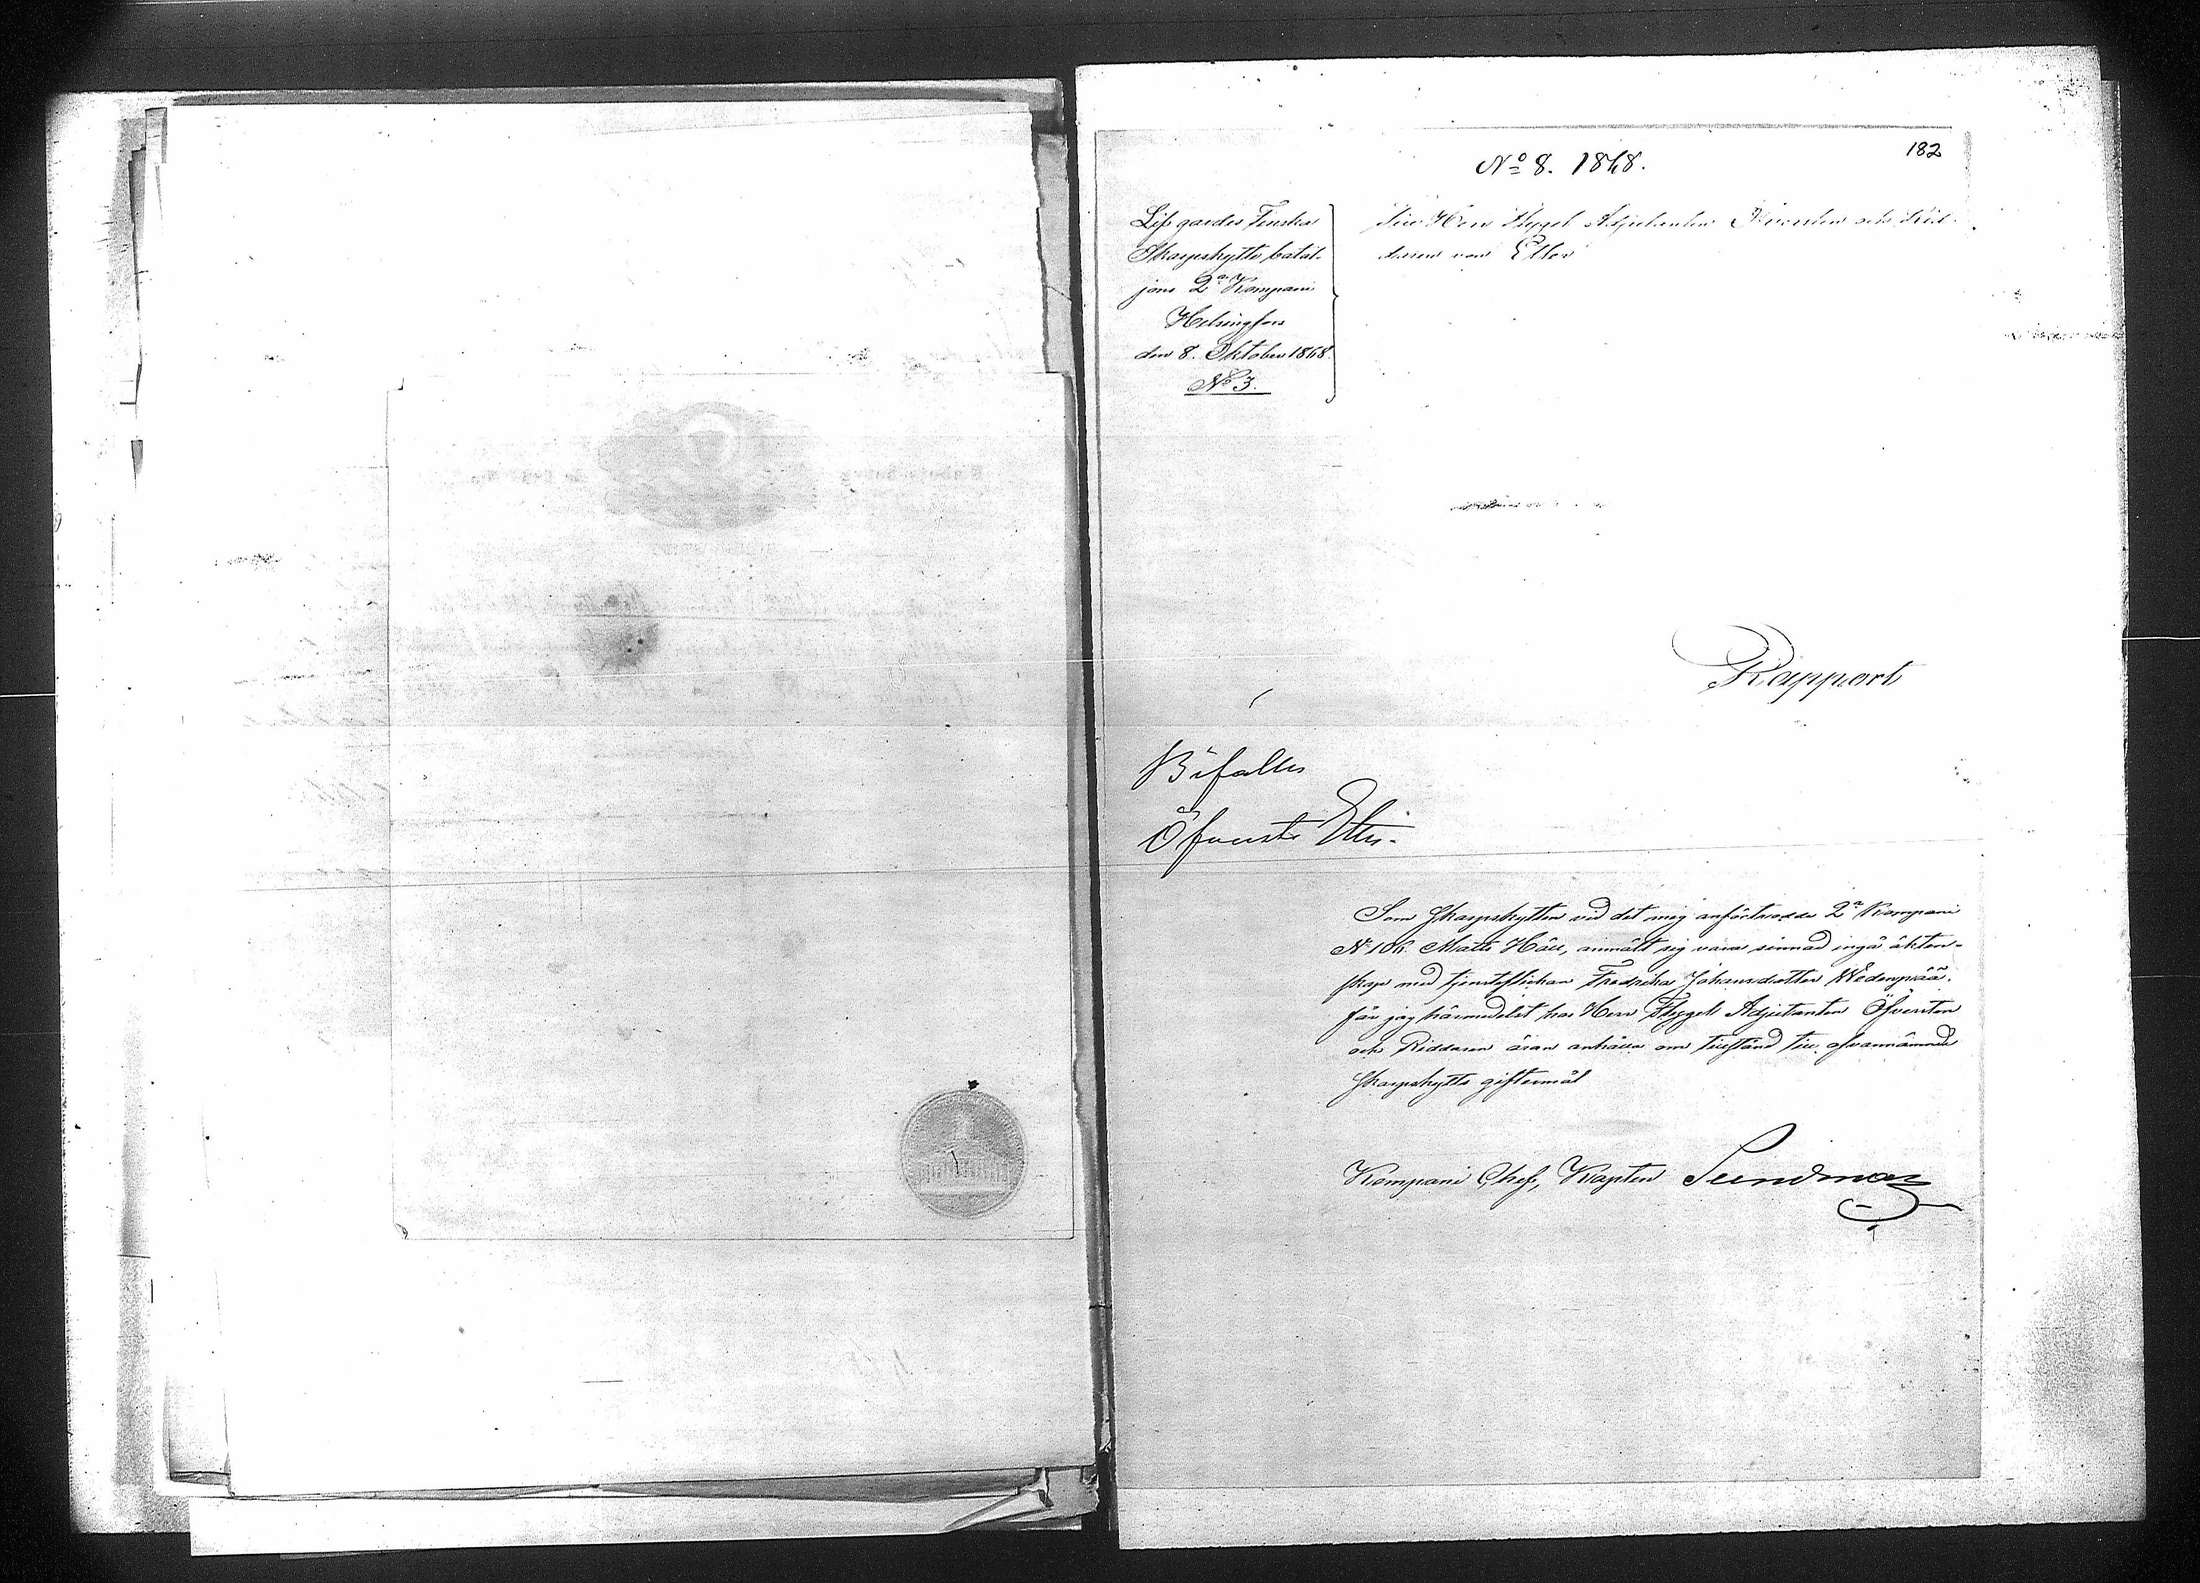 182
No 8. 1868.
Lif gardes Finska
Skarpskytte batal-
jons 2a Kompani
Helsingfors
den 8. Oktober 1868.
No 3.
Till Herr Flygel Adjutanten Öfversten och Rid-
daren von Etter
Rapport
Bifalles
Öfverste Etter.
Som Skarpskytten vid det mig anförtrodda 2a Kompani
No 106 Matts Häll, anmält sig vara sinnad ingå äkten-
skap med tjensteflickan Fredrika Johansdotter Wedenpää,
får jag härmedelst hos Herr Flygel Adjutanten Öfversten
och Riddaren äran anhålla om tillstånd till ofvannämnde
Skarpskytts giftermål
Kompani Chef, Kapten Sundman